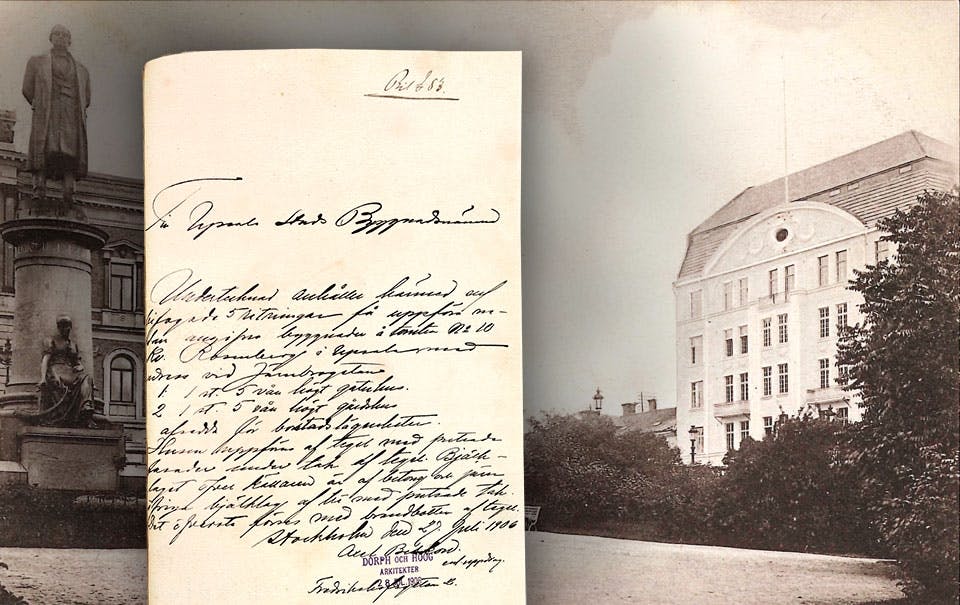 Till Upsala Stads Byggnadsnämnd
Undertecknad anhåller härmed enl
bifogade 5 ritningar få uppföra ne-
dan angifna byggnader å tomten No 10
Kv. Rosenberg i Upsala med
adress vid Järnbrogatan
1. 1 st. 5 vån högt gatuhus.
2. 1 st. 5 vån högt gårdshus
afsedda för bostadslägenheter.
Husen uppföras af tegel med putsade
fasader under tak af tegel. Bjälk-
laget öfver källaren är af betong och järn
öfriga bjälklag af trä med putsade tak.
Det öfversta förses med brandbotten af tegel.
Stockholm den 27 Juli 1906
Axel
enl uppdrag.
DORPH OCH HÖÖG
ARKITEKTER